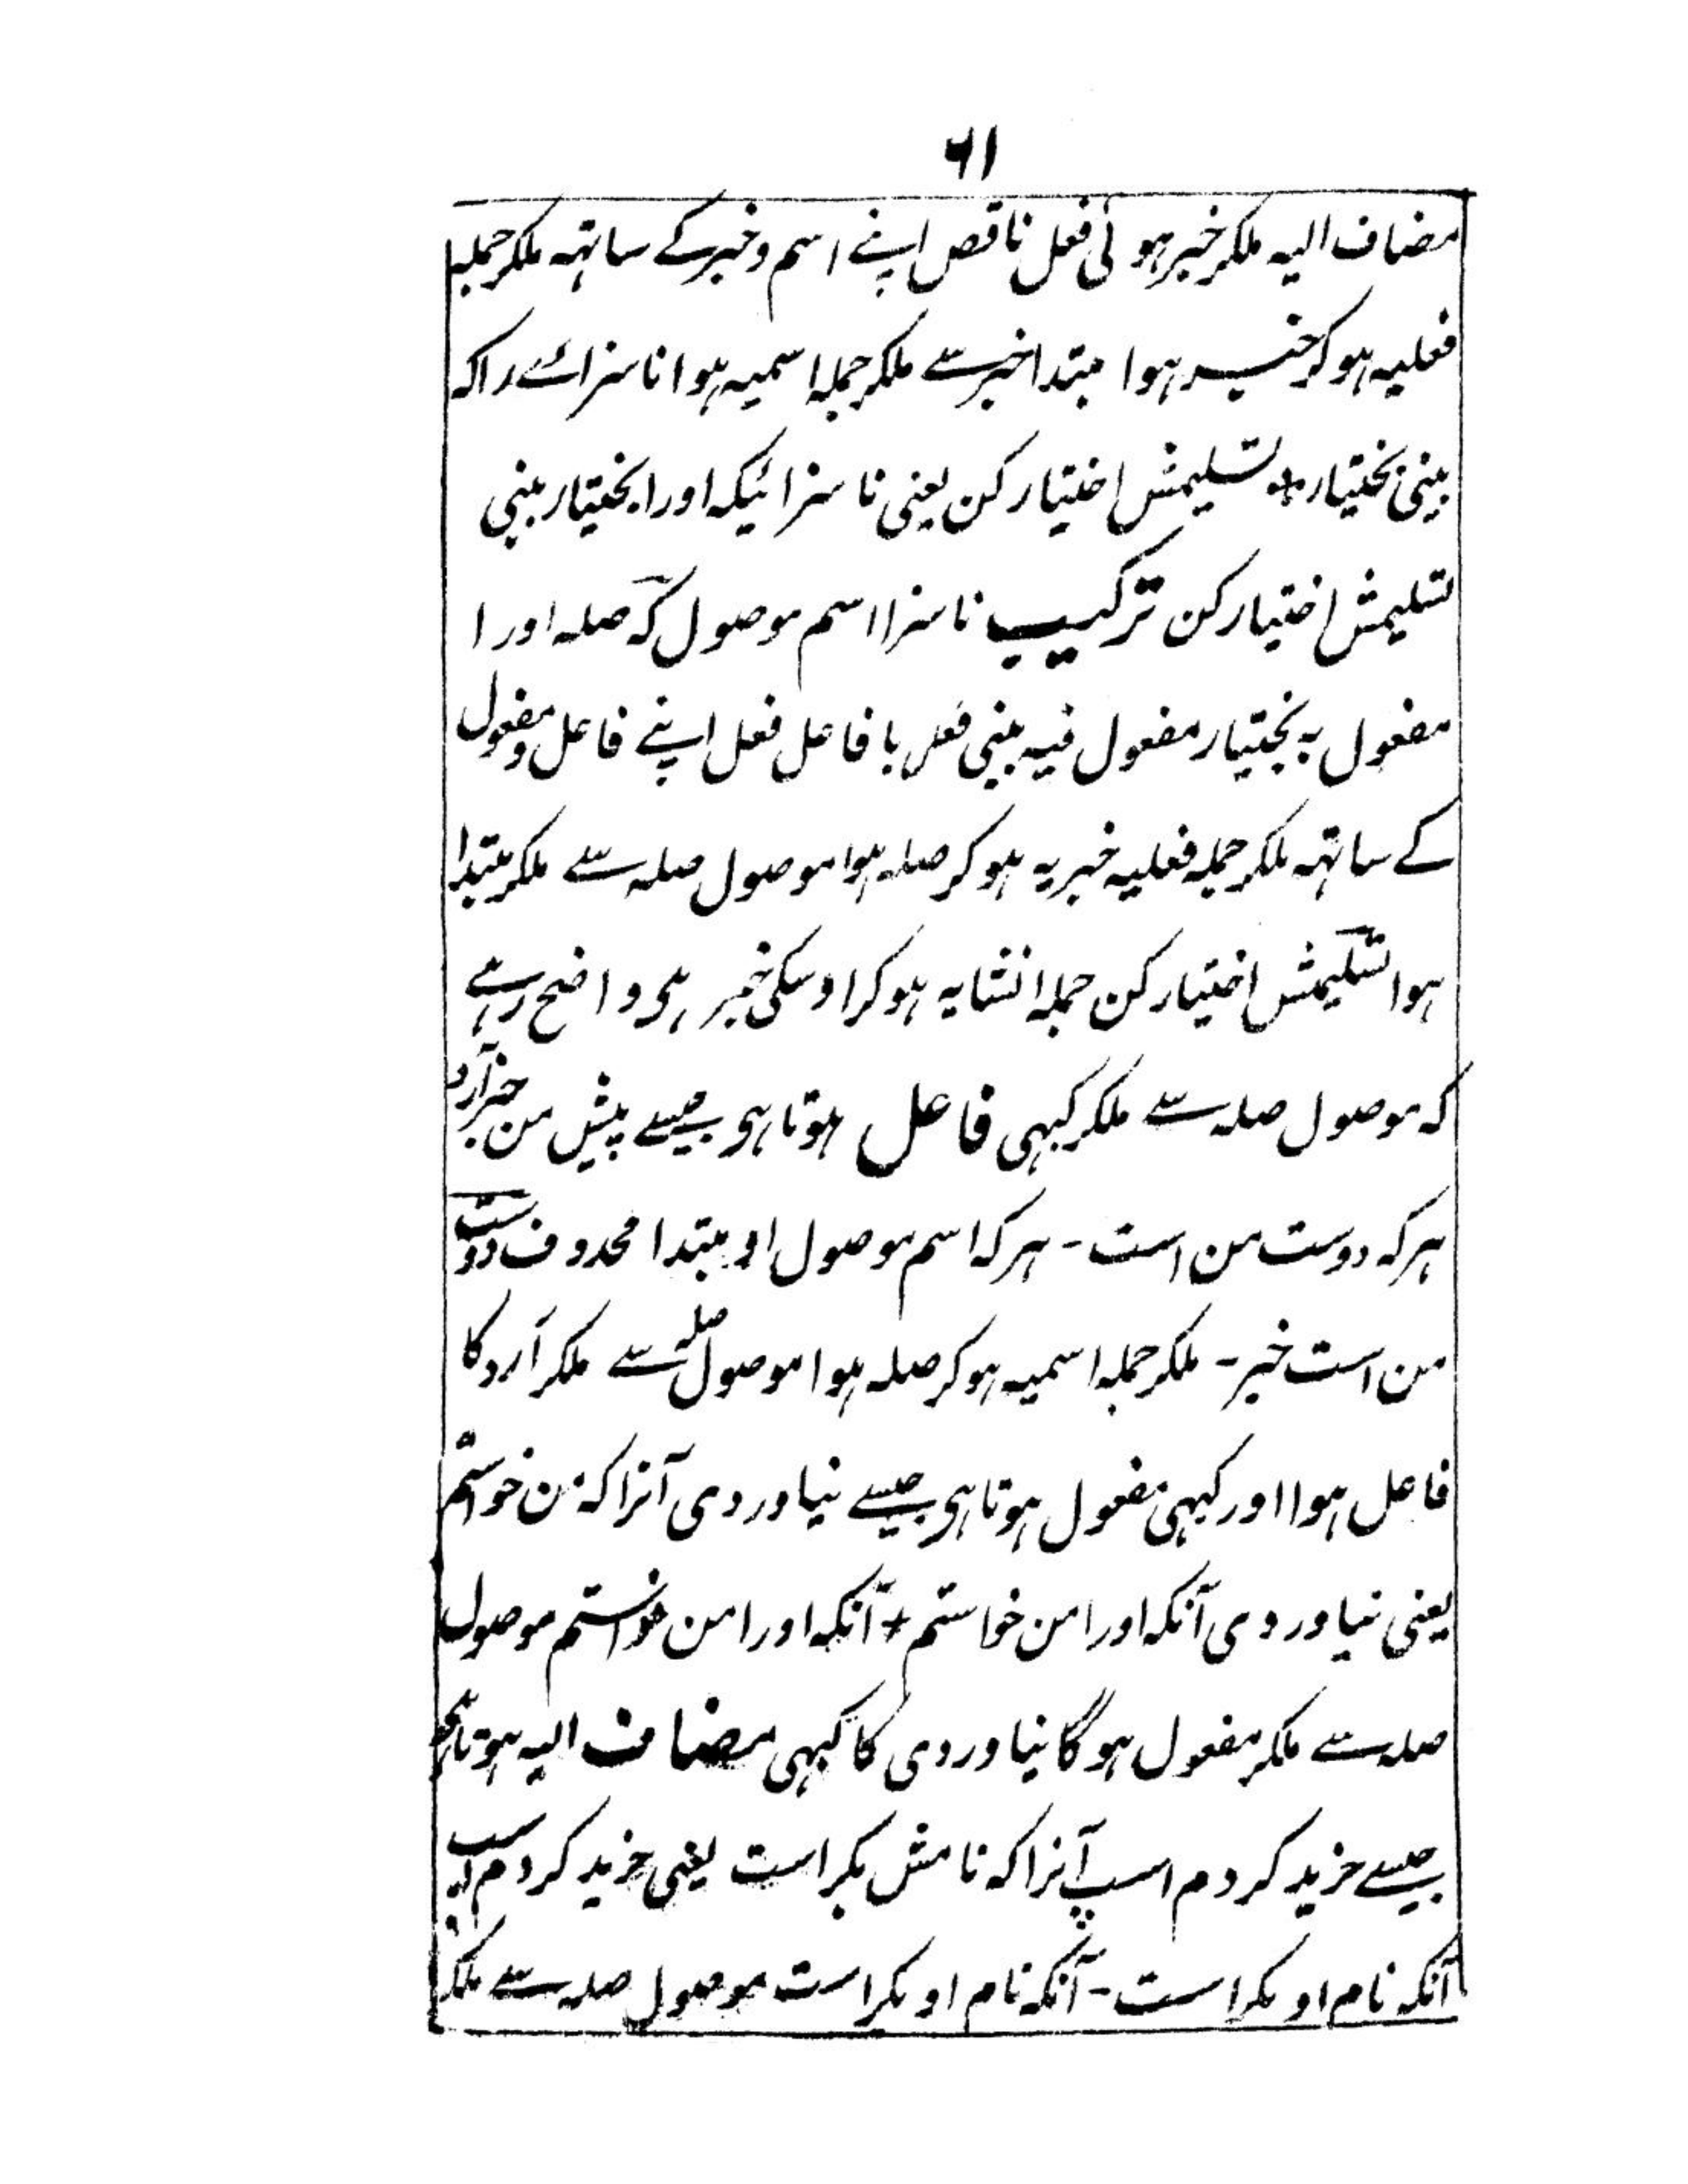 ۶۱
مضاف الیہ ملکر خبر ہوئی فعل ناقص اپنے اسم و خبر کے ساتہہ ملکر جملہ
فعلیہ ہو کر خبر ہوا مبتدا خبر سے ملکر جملہ اسمیہ ہوا ناسزاے را کہ
بینی بختیار + تسلیمش اختیار کن یعنی نا سزائیکہ اورا بختیار بینی
تسلیمش اختیار کن ترکیب ناسزا اسم موصول کہ صلہ اورا
مفعول بہ بختیار مفعول فیہ بینی فعل با فاعل فعل اپنے فاعل و مفعول
کے ساتہہ ملکر جملہ فعلیہ خبریہ ہو کر صلہ ہوا موصول صلہ سے ملکر مبتدا
ہوا تسلیمش اختیار کن جملہ انشایہ ہو کر اوسکی خبر ہی واضح رہے
کہ موصول صلہ سے ملکر کبہی فاعل ہوتا ہی جیسے پیش من خبر آرد
ہر کہ دوست من است - ہر کہ اسم موصول او مبتدا محذوف دوست
من است خبر - ملکر جملہ اسمیہ ہو کر صلہ ہوا موصول صلہ سے ملکر آرد کا
فاعل ہوا اور کبہی مفعول ہوتا ہی جیسے نیاوردی آنرا کہ من خواستم
یعنی نیاوردی آنکہ اورا من خواستم + آنکہ اورا من خواستم موصول
صلہ سے ملکر مفعول ہوگا نیاوردی کا کبہی مضاف الیہ ہوتا ہی
جیسے خرید کردم اسپ آنرا کہ نامش بکر است یعنی خرید کردم اسپ
آنکہ نام او بکر است - آنکہ نام او بکر است موصول صلہ سے ملکر